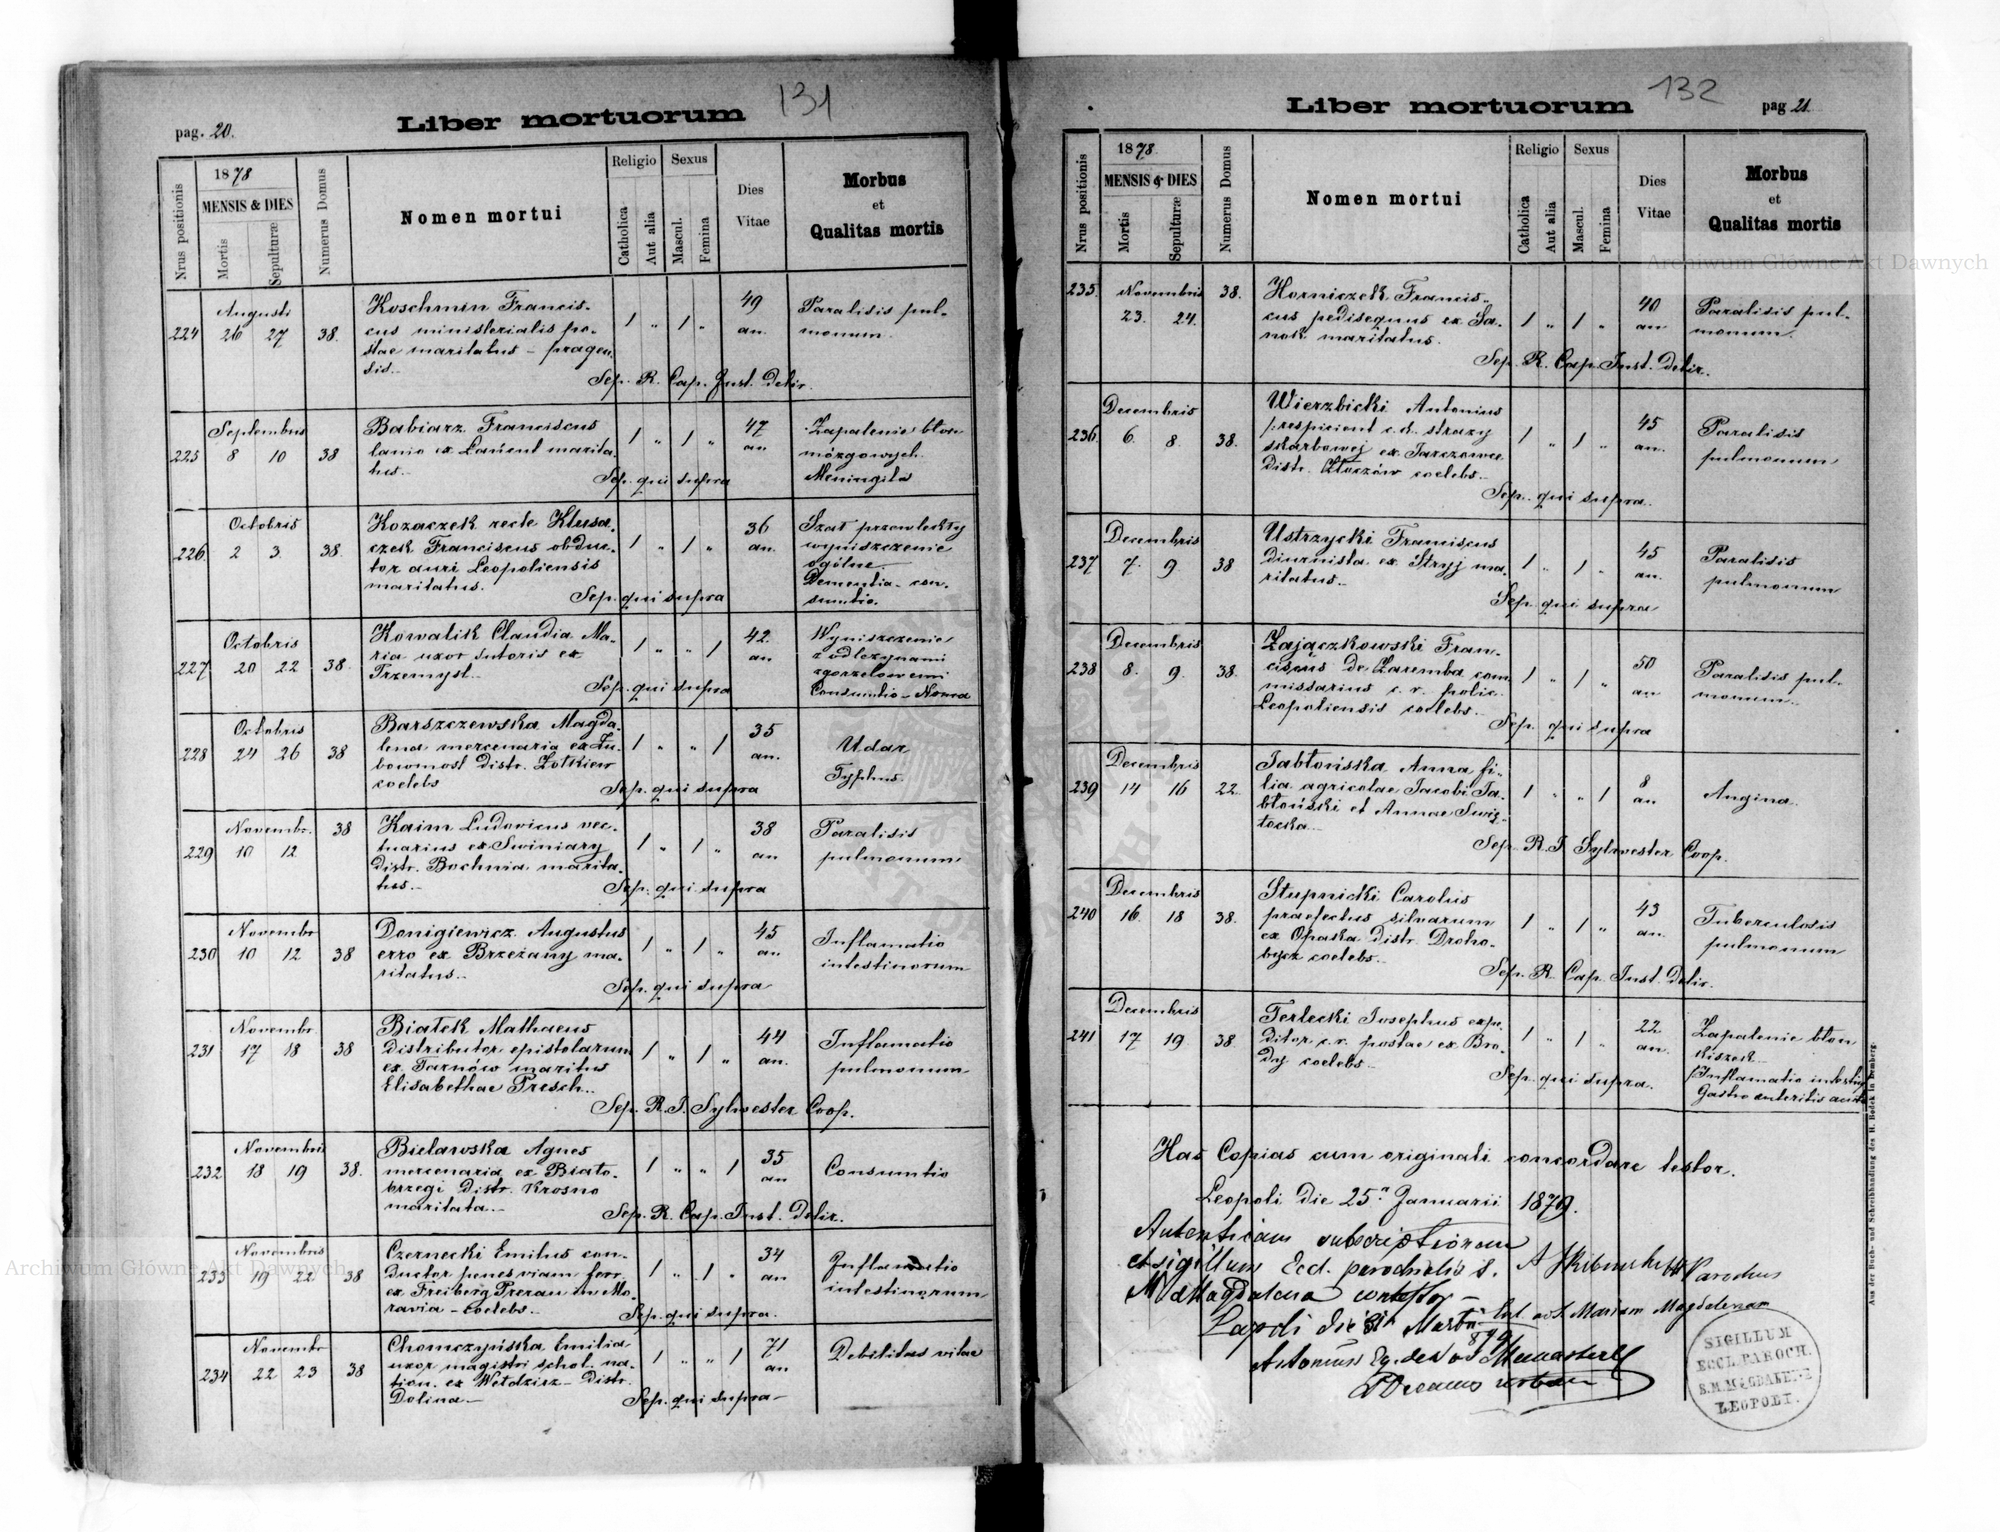 131
Liber mortuorum
pag. 20.
Nrus positionis
1878
MENSIS & DIES
Mortis
Sepulturæ
Numerus Domus
Nomen mortui
Religio
Catholica
Aut alia
Sexus
Mascul.
Femina
Dies
Vitae
Morbus
et
Qualitas mortis
Augusti
224 26 27 38.
Koschmin Francis-
cus ministerialis po-
stae maritatus – pragen
sis..
1 „ 1 „
49
an.
Paralisis pul-
monum.
Sep. R. Cap. Inst. Delir.
Septembris
225 8 10 38
Babiarz Franciscus
lanio ex Łańcut marita
tus..
1 „ 1 „
47
an
Zapalenie błon
mózgowych.
Meningitis
Sep. qui supra
Octobris
226 2 3. 38.
Kozaczek recte Klusa-
czek Franciscus obduc-
tor auri Leopoliensis
maritatus.
1 „ 1 „
36
an.
Szał przewlekły
wyniszczenie
ogólne.
Dementia – con-
sumtio.
Sep. qui supra
Octobris
227 20 22 38.
Kowalik Claudia Ma-
ria uxor sutoris ex
Przemysl..
1 „ „ 1
42.
an
Wyniszczenie
z odleżynami
zgorzelowemi
Consumtio – Noma
Sep. qui supra
Octobris
228 24 26 38
Barszczewska Magda-
lena mercenaria ex Lu-
bowmost Distr. Żołkiew
coelebs
1 „ „ 1
35
an.
Udar
Typhus.
Sep. qui supra
Novembr.
229 10 12 38
Kaim Ludovicus vec-
tuarius ex Swiniary
Distr. Bochnia marita-
tus.–
1 „ 1 „
38
an
Paralisis
pulmonum
Sep. qui supra
Novembr
230 10 12 38
Donigiewicz Augustus
erro ex Brzeżany ma-
ritatus..
1 „ 1 „
45
an.
Inflamatio
intestinorum
Sep. qui supra
Novembr.
231 17 18 38
Białek Mathaeus
distributor epistolarum
ex Tarnów maritus
Elisabethae Presch..
1 „ 1 „
44
an.
Inflamatio
pulmonum
Sep. R. J. Sylwester Coop.
Novembris
232 18 19 38.
Bielawska Agnes
mercenaria ex Biało-
brzegi Distr. Krosno
maritata..
1 „ „ 1
35
an
Consumtio
Sep. R. Cap. Inst. Delir.
Novembris
233 19 22 38
Czernecki Emilus con-
ductor penes viam ferr.
ex Freiberg Prerau in Mo-
ravia – coelebs..
1 „ 1 „
34
an
Inflamatio
intestinorum
Sep. qui supra.
Novembr
234 22 23 38
Chomczyńska Emilia
uxor magistri schol. na-
tion. ex Wełdzirz – Distr.
Dolina –
1 „ „ 1
71
an
Debilitas vitae
Sep. qui supra –
132
Liber mortuorum
pag 21.
Nrus positionis
1878.
MENSIS & DIES
Mortis
Sepulturæ
Numerus Domus
Nomen mortui
Religio
Catholica
Aut alia
Sexus
Mascul.
Femina
Dies
Vitae
Morbus
et
Qualitas mortis
235. Novembris 38.
23. 24.
Horniczek Francis-
cus pedisequus ex Sa-
nok maritatus.
1 „ 1 „
40
an
Paralisis pul-
monum.
Sep. R. Cap. Inst. Delir.
Decembris
236. 6. 8. 38.
Wierzbicki Antonius
respicient c.k. straży
skarbowej ex Jarczowce
Distr. Złoczów coelebs..
1 „ 1 „
45
an.
Paralisis
pulmonum
Sep. qui supra.
Decembris
237 7. 9 38
Ustrzycki Franciscus
diurnista ex Stryj ma-
ritatus..
1 „ 1 „
45
an.
Paralisis
pulmonum
Sep. qui supra
Decembris
238 8. 9. 38.
Zajączkowski Fran-
ciscus de Zaremba com-
missarius c. r. polic.
Leopoliensis coelebs..
1 „ 1 „
50
an
Paralisis pul-
monum..
Sep. qui supra
Decembris
239 14 16 22.
Jabłońska Anna fi-
lia agricolae Jacobi Ja-
błoński et Annae Swię-
tocka..
1 „ „ 1
8
an
Angina.
Sep. R. J. Sylwester Coop.
Decembris
240 16. 18 38.
Stupnicki Carolus
praefectus silvarum
ex Opaska Distr. Droho-
bycz coelebs..
1 „ 1 „
43
an.
Tuberculosis
pulmonum
Sep. R. Cap. Inst. Delir.
Decembris
241 17 19 38.
Terlecki Josephus expe-
ditor c.r. postae ex Bro-
dy coelebs..
1 „ 1 „
22.
an.
Zapalenie błon
kiszek..
Inflamatio intestin
Gastro enteritis acuta
Sep. qui supra.
Has Copias cum originali concordare testor.
Leopoli die 25. Januarii 1879.
Autenticam subscriptionem
et sigillum Eccl. parochialis S.
Parochus
M. Magdalena contestor –
ad S. Mariam Magdalenam
Leopoli die Martii
879
Antonius
Decanus urban
SIGILLUM
ECCL. PAROCH.
S. M. MAGDALENÆ
LEOPOLI.
Aus der Buch- und Schreibhandlung des H. Bodek in Lemberg.
Archiwum Główne Akt Dawnych
Archiwum Główne Akt Dawnych